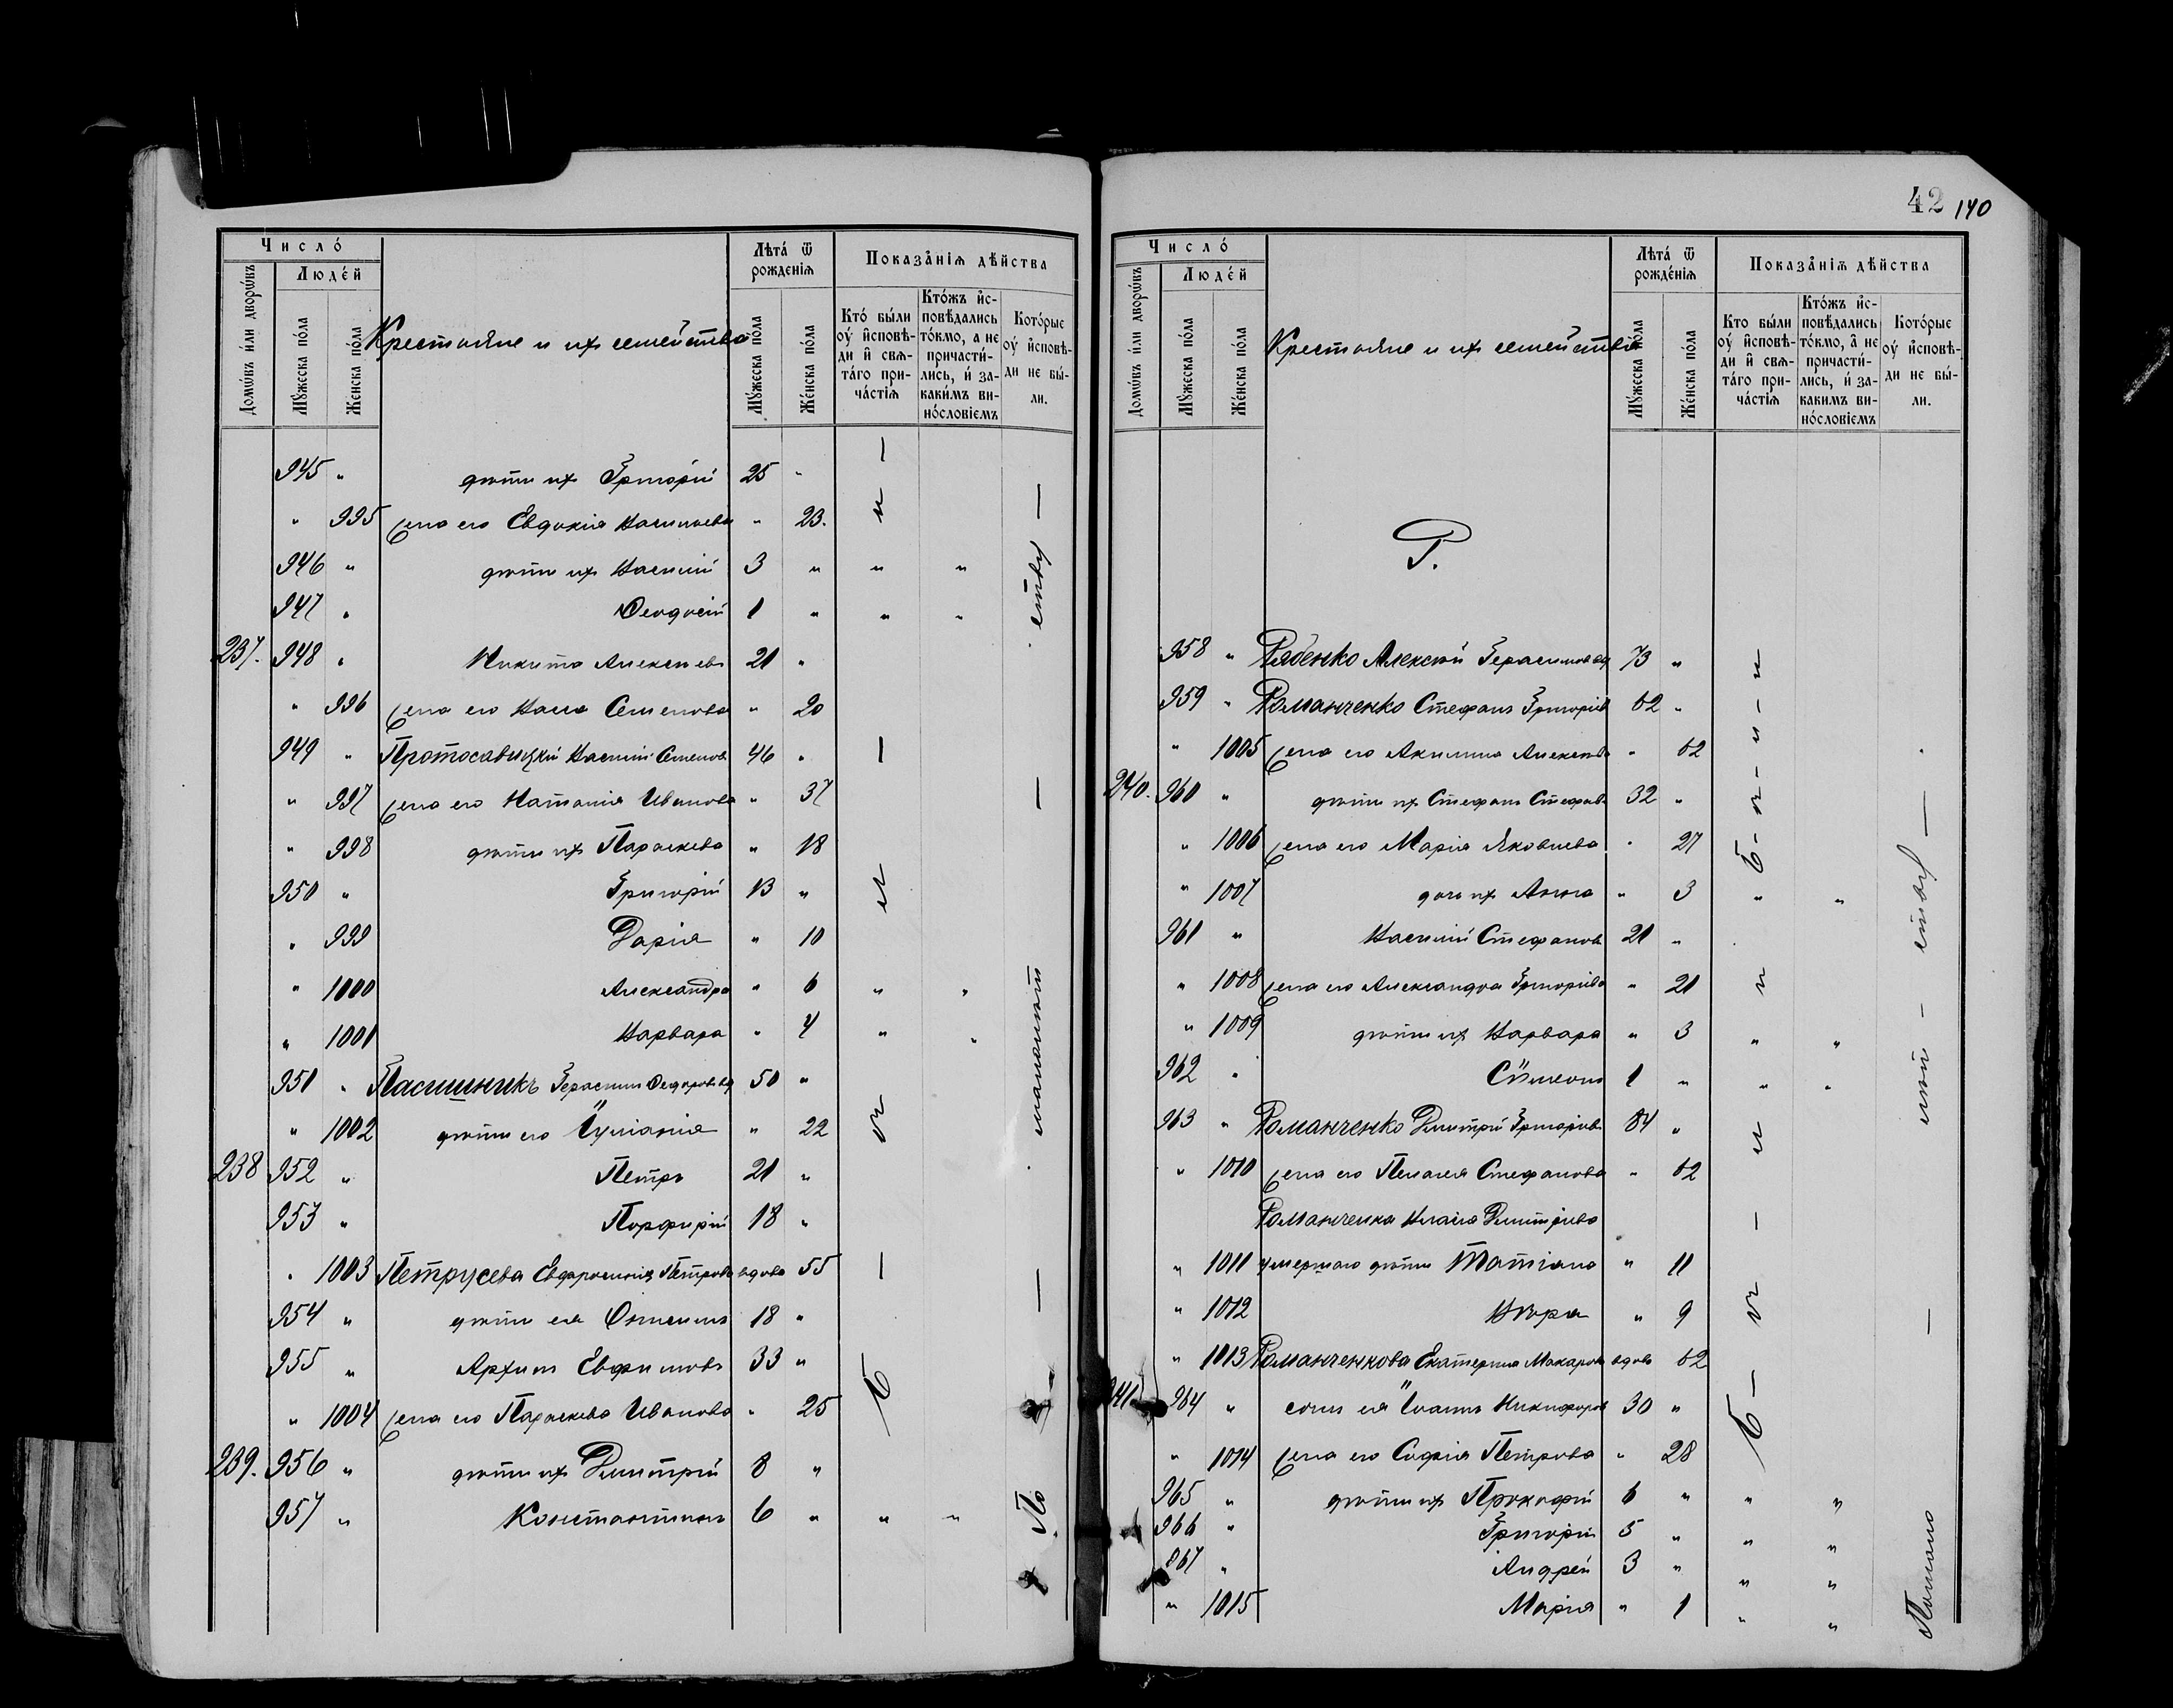 Число́
Люде́й
Домѡ́въ и҆лѝ дворѡ́въ
Мꙋ́жеска по́ла
Же́нска по́ла
Крестьяне и ихъ семейства
Лѣта́ ѿ рождє́нїѧ
Мꙋ́жеска по́ла
Же́нска по́ла
Показа̑нїѧ дѣ́йства
Кто́ бы́ли оу҆ и҆сповѣ-
ди и҆ свѧ-
та́го при-
ча́стїѧ
Кто́жъ и҆с-
повѣ́дались
то́кмо, а не
причасти́-
лись, и҆ за-
каки́мъ ви-
носло́вїемъ
Кото́рые
оу҆ и҆сповѣ́-
ди не бы́-
ли.
945 " дѣти ихъ Григорій 25 "
" 995 жена его Евдокія Васильева " 23.
946 " дѣти ихъ Василій 3 " " "
947 " Ѳеодосій 1 " " "
237. 948 " Никита Алексѣевъ 21 "
" 996 жена его Васса Семенова " 20
949 " Протосавицкій Василій Семеновъ 46 "
" 997 жена его Наталія Иванова " 37
" 998 дѣти ихъ Параскева " 18
950 " Григорій 13 "
" 999 Дарія " 10
" 1000 Александра " 6 " "
" 1001 Варвара " 4 " "
951 " Пасишникъ Герасимъ Ѳедоровъ вд 50 "
" 1002 дѣти его Іуліанія " 22
238 952 " Петръ 21 "
953 " Порфирій 18 "
" 1003 Петрусева Евфросинія Петрова вдова 55
954 " дѣти ея Онисимъ 18 "
955 " Архипъ Евфимовъ 33 "
" 1004 жена его Параскева Иванова " 25
239. 956 " дѣти ихъ Димитрій 8 "
957 " Константинъ 6 " " "
Б ы л и
По малолѣтству
42 140
Число́
Люде́й
Домѡ́въ и҆лѝ дворѡ́въ
Мꙋ́жеска по́ла
Же́нска по́ла
Крестьяне и ихъ семейства
Лѣта́ ѿ рождє́нїѧ
Мꙋ́жеска по́ла
Же́нска по́ла
Показа̑нїѧ дѣ́йства
Кто бы́ли
оу҆ и҆сповѣ́-
ди и҆ свѧ-
та́го при-
ча́стїѧ
Кто́жъ и҆с-
повѣ́дались
то́кмо, а҆ не
причасти́-
лись, и҆ за-
каким ви-
но́словїемъ
Кото́рые
оу҆ и҆сповѣ́-
ди не бы́-
ли.
Р.
958 " Рябенко Алексѣй Герасимовъ вд 73 "
959 " Романченко Стефанъ Григоріев 62 "
" 1005 жена его Акилина Алексѣева " 62
240. 960 " дѣти ихъ Стефанъ Стефановъ 32 "
" 1006 жена его Марія Яковлева " 27
" 1007 дочь ихъ Анна " 3 " "
961 " Василій Стефановъ 21 "
" 1008 жена его Александра Григоріева " 21
" 1009 дѣти ихъ Варвара " 3 " "
962 " Сѵмеонъ 1 " " "
963 " Романченко Димитрій Григоріевъ 64 "
" 1010 жена его Пелагея Стефанова " 62
Романченка Власія Димитріева
" 1011 умершаго дѣти Татіана " 11
" 1012 Вѣра " 9
" 1013 Романченкова Екатерина Макарова вдова 62
241. 964 " сынъ ея Іоаннъ Никифоровъ 30 "
" 1014 жена его Софія Петрова " 28
965 " дѣти ихъ Прокофій 6 " " "
966 " Григорій 5 " " "
967 " Андрей 3 " " "
" 1015 Марія " 1 " "
Б ы л и
Б ы л и
По малолѣтству